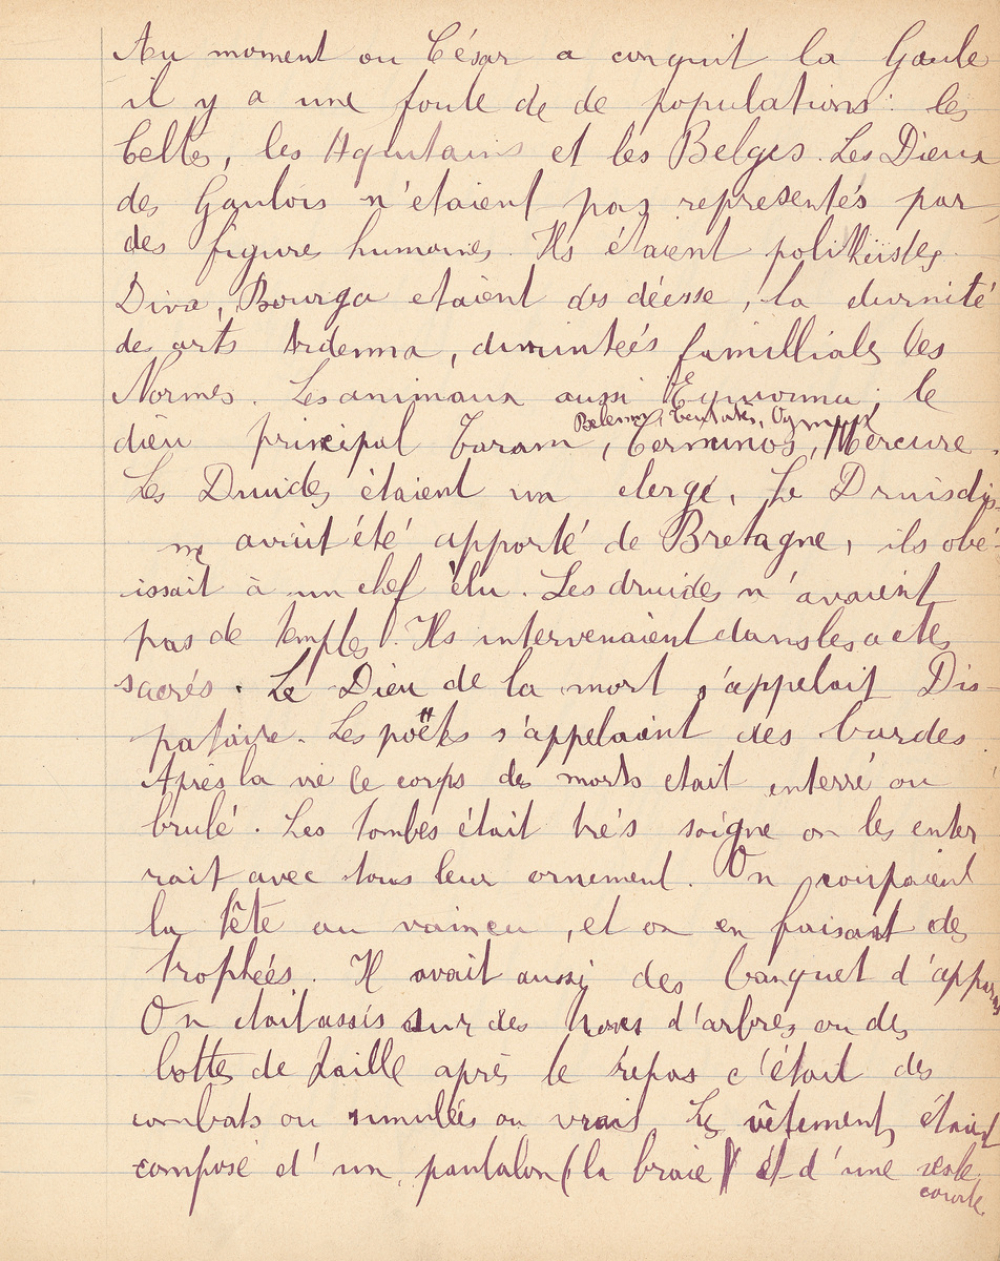 Au moment ou César a conquit la Gaule
il y a une foule de de populations : les
Celtes, les Aquitains et les Belges. Les Dieux
des Gaulois n'étaient pas representés par
des figures humaines. Ils étaient polithéïstes.
Diva, Bourga etaient des déesse, la divinité
de arts Ardenna, divinitées familliales les
Normes. Les animaux aussi Epinorma, le
Belenns, Teutates, Ogmyx
dieu principal Taram, Cerninos, Mercure.
Les Druides étaient un clergé, Le Druisdis-
me avait été apporté de Bretagne, ils obé-
issait à un chef élu. Les druides n'avaient
pas de temples. Ils intervenaient dans les actes
sacrés. Le Dieu de la mort s'appelait Dis-
pataire. Les poëtes s'appelaient des bardes
Après la vie le corps des morts etait enterré ou
brulé. Les tombes était trés soigne on les enter
rait avec tous leur ornement. On coupaient
la tête au vaincu, et on en faisant des
trophées. Il avait aussi des banquet d'apparas
On etait assis sur des troncs d'arbres ou des
bottes de paille après le repas c'était des
combats ou simulées ou vrais Les vêtements étaient
composé d'un pantalon (la braie) et d'une
courte.